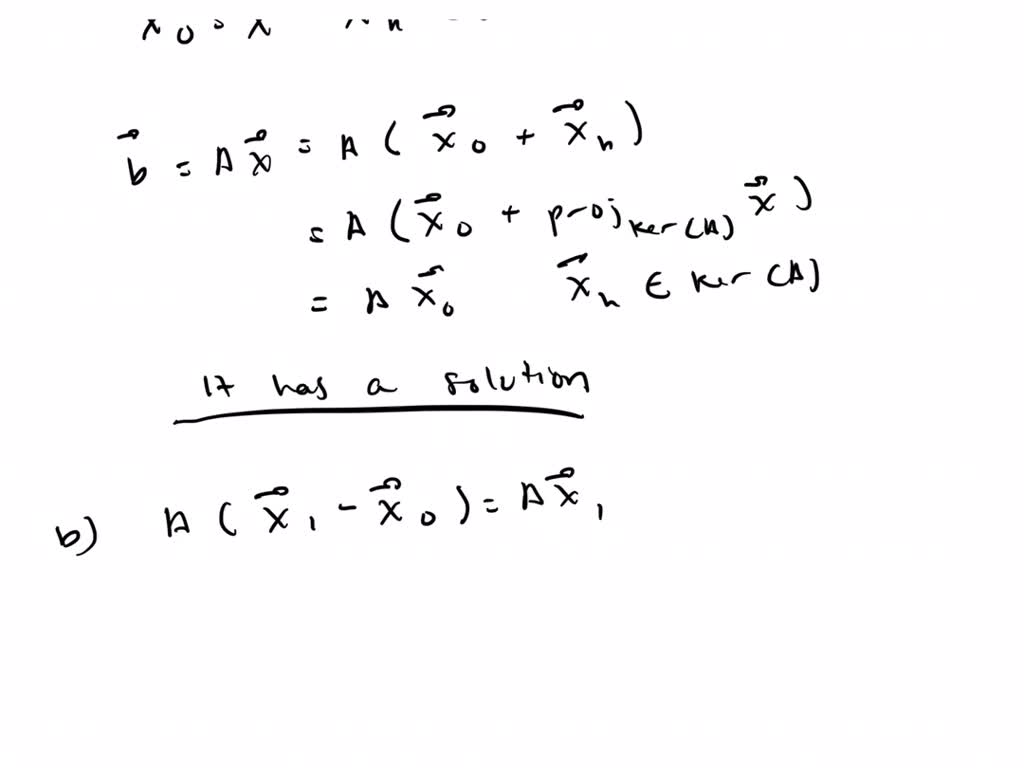 b⃗ = A x⃗ = A ( x⃗₀ + x⃗ₕ )
= A ( x⃗₀ + proj ker(A) x⃗ )
= A x⃗₀ x⃗ₕ ∈ ker (A)
It has a solution
b) A ( x⃗₁ - x⃗₀ ) = A x⃗₁